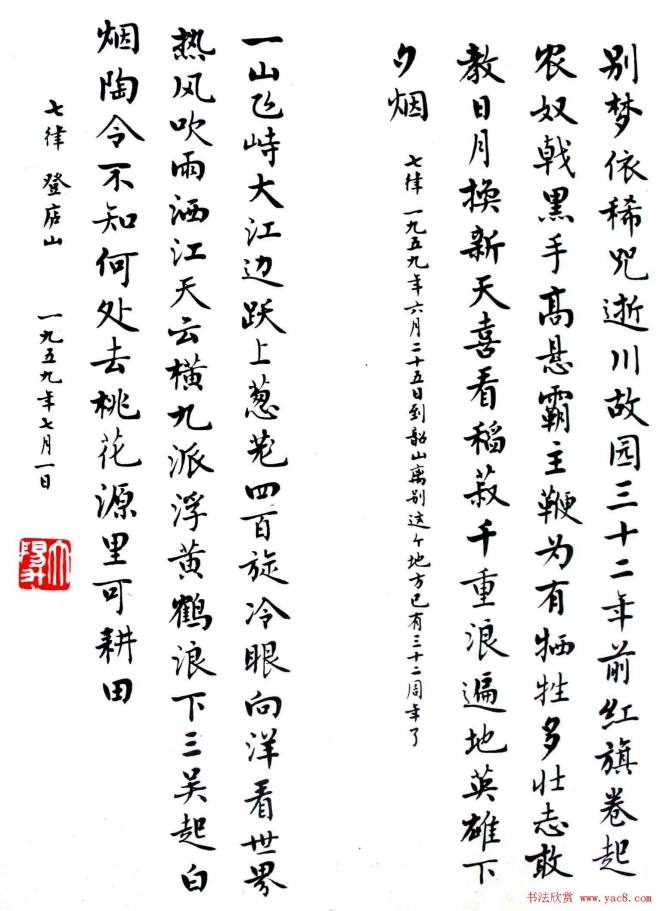 别梦依稀咒逝川故园三十二年前红旗卷起
农奴戟黑手高悬霸主鞭为有牺牲多壮志敢
教日月换新天喜看稻菽千重浪遍地英雄下
夕烟
七律 一九五九年六月二十五日到韶山离别这个地方已有三十二周年了
一山飞峙大江边跃上葱茏四百旋冷眼向洋看世界
热风吹雨洒江天云横九派浮黄鹤浪下三吴起白
烟陶令不知何处去桃花源里可耕田
七律 登庐山 一九五九年七月一日
书法欣赏 www.yac8.com